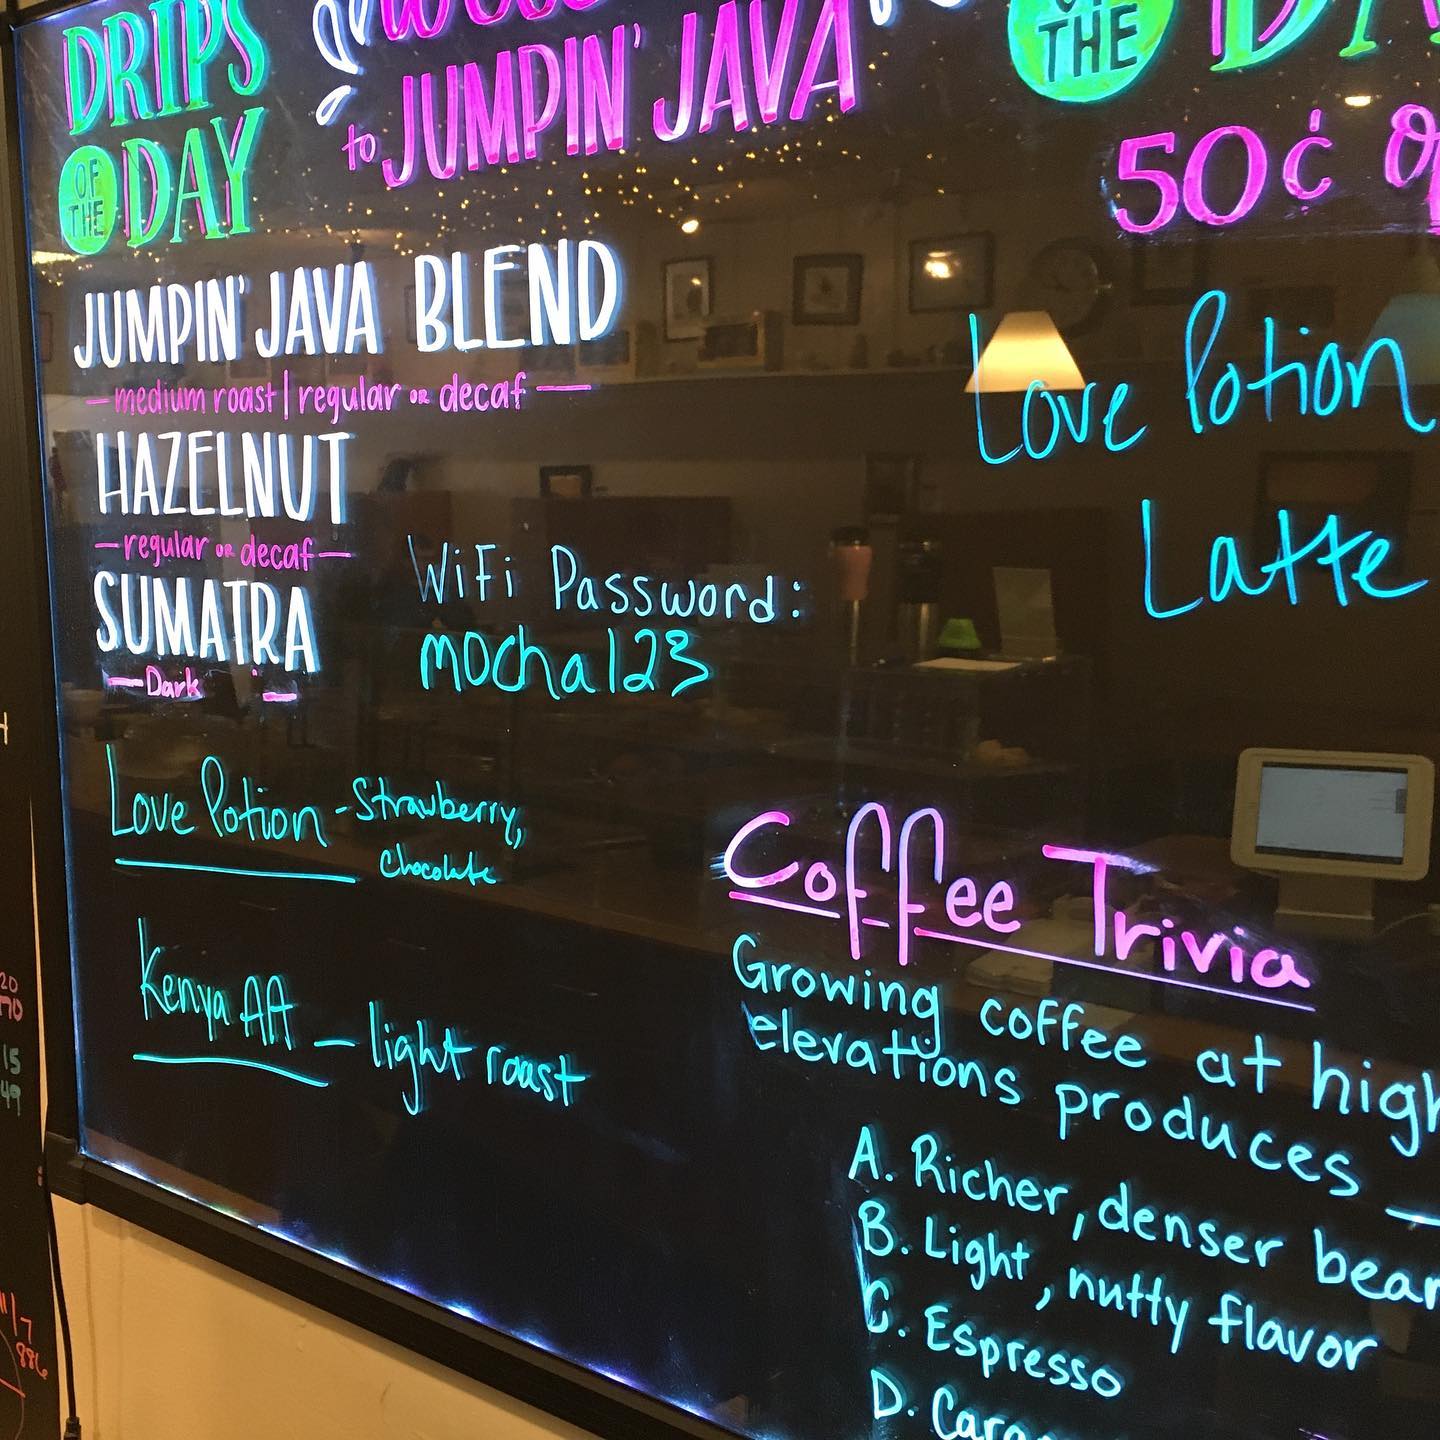 DRIPS
OF THE DAY
to JUMPIN' JAVA
OF THE
50¢
JUMPIN' JAVA BLEND
—medium roast | regular OR decaf—
HAZELNUT
—regular OR decaf—
SUMATRA
—Dark—
WiFi Password:
mocha123
Love Potion
Latte
Love Potion - Strawberry,
Chocolate
Kenya AA — light roast
Coffee Trivia
Growing coffee at high
elevations produces —
A. Richer, denser
B. Light, nutty flavor
C. Espresso
D.
20
15
49